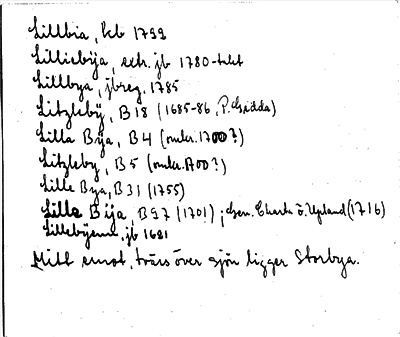 Lillbia, kb 1799
Lilliebÿa, extr. jb 1780-talet
Lillbya, jbreg. 1785
Litzlebÿ, B 18 (1685-86, P. Gedda)
Lilla Bÿa, B 4 (omkr. 1700?)
Litzleby, B 5 (omkr. 1700?)
Lille Bya, B 31 (1755)
Lilla Bija, B 97 (1701); Gen. Charta ö. Upland (1716)
jb 1681
Mitt emot, tvärs över sjön ligger Storbya.